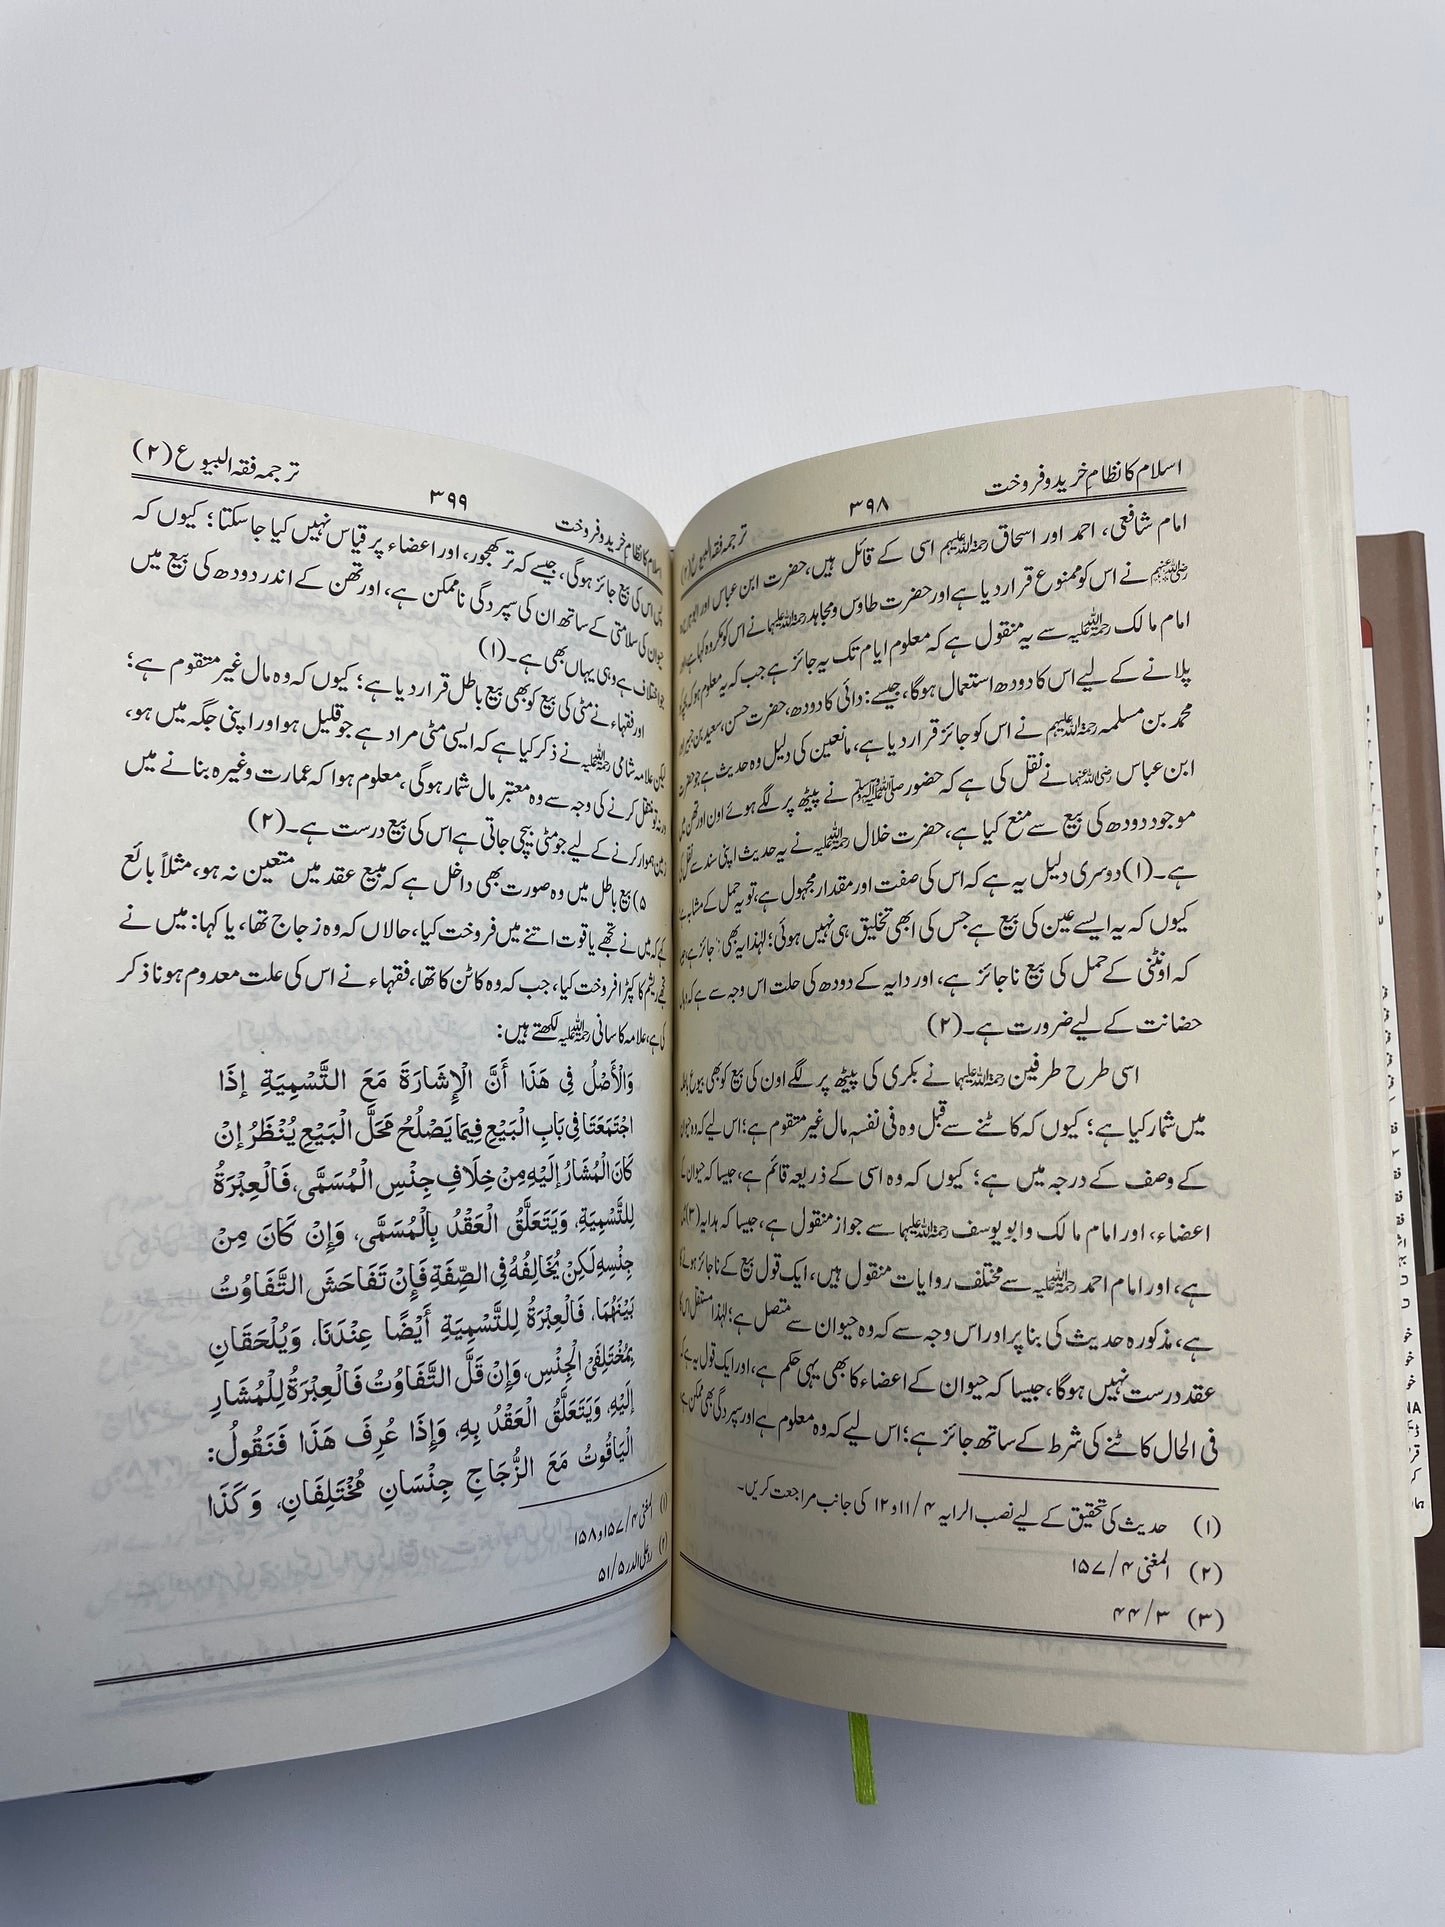 اسلام کا نظامِ خرید و فروخت
۳۹۸
ترجمہ فقہ البیوع (۲)
امام شافعی، احمد اور اسحاق رحمۃ اللہ علیہم اسی کے قائل ہیں، حضرت ابن عباس اور
رضی اللہ عنہم نے اس کو ممنوع قرار دیا ہے اور حضرت طاوس و مجاہد رحمۃ اللہ علیہما نے اس کو مکروہ کہا ہے اور
امام مالک رحمۃ اللہ علیہ سے یہ منقول ہے کہ معلوم ایام تک یہ جائز ہے جب کہ یہ معلوم ہو کہ
پلانے کے لیے اس کا دودھ استعمال ہوگا، جیسے: دائی کا دودھ، حضرت حسن، سعید بن جبیر اور
محمد بن مسلمہ رحمۃ اللہ علیہم نے اس کو جائز قرار دیا ہے، مانعین کی دلیل وہ حدیث ہے جو حضرت
ابن عباس رضی اللہ عنہما نے نقل کی ہے کہ حضور صلی اللہ علیہ وسلم نے پیٹھ پر لگے ہوئے اون اور تھن میں
موجود دودھ کی بیع سے منع کیا ہے، حضرت خلال رحمۃ اللہ علیہ نے یہ حدیث اپنی سند سے نقل کی
ہے۔ (۱) دوسری دلیل یہ ہے کہ اس کی صفت اور مقدار مجہول ہے، تو یہ حمل کے مشابہ ہے
کیوں کہ یہ ایسے عین کی بیع ہے جس کی ابھی تخلیق ہی نہیں ہوئی؛ لہٰذا یہ بھی جائز ہے
کہ اونٹنی کے حمل کی بیع ناجائز ہے، اور دایہ کے دودھ کی حلت اس وجہ سے ہے کہ
حضانت کے لیے ضرورت ہے۔ (۲)
اسی طرح طرفین رحمۃ اللہ علیہما نے بکری کی پیٹھ پر لگے اون کی بیع کو بھی بیوع باطلہ
میں شمار کیا ہے؛ کیوں کہ کاٹنے سے قبل وہ فی نفسہٖ مال غیر متقوم ہے؛ اس لیے کہ وہ حیوان
کے وصف کے درجہ میں ہے؛ کیوں کہ وہ اسی کے ذریعہ قائم ہے، جیسا کہ حیوان کے
اعضاء، اور امام مالک و ابو یوسف رحمۃ اللہ علیہما سے جواز منقول ہے، جیسا کہ ہدایہ (۳) میں
ہے، اور امام احمد رحمۃ اللہ علیہ سے مختلف روایات منقول ہیں، ایک قول بیع کے ناجائز ہونے کا
ہے، مذکورہ حدیث کی بنا پر اور اس وجہ سے کہ وہ حیوان سے متصل ہے؛ لہٰذا مستقل اس کا
عقد درست نہیں ہوگا، جیسا کہ حیوان کے اعضاء کا بھی یہی حکم ہے، اور ایک قول یہ ہے کہ
فی الحال کاٹنے کی شرط کے ساتھ جائز ہے؛ اس لیے کہ وہ معلوم ہے اور سپردگی بھی ممکن ہے
(۱) حدیث کی تحقیق کے لیے نصب الرایہ ۴/۱۱ و ۱۲ کی جانب مراجعت کریں۔
(۲) المغنی ۴/۱۵۷
(۳) ۳/۴۴
اسلام کا نظامِ خرید و فروخت
۳۹۹
ترجمہ فقہ البیوع (۲)
اس کی بیع جائز ہوگی، جیسے کہ تر کھجور، اور اعضاء پر قیاس نہیں کیا جا سکتا؛ کیوں کہ
حیوان کی سلامتی کے ساتھ ان کی سپردگی ناممکن ہے، اور تھن کے اندر دودھ کی بیع میں
جو اختلاف ہے وہی یہاں بھی ہے۔ (۱)
اور فقہاء نے مٹی کی بیع کو بھی بیع باطل قرار دیا ہے؛ کیوں کہ وہ مال غیر متقوم ہے؛
لیکن علامہ شامی رحمۃ اللہ علیہ نے ذکر کیا ہے کہ ایسی مٹی مراد ہے جو قلیل ہو اور اپنی جگہ میں ہو،
ورنہ تو منتقل کرنے کی وجہ سے وہ معتبر مال شمار ہوگی، معلوم ہوا کہ عمارت وغیرہ بنانے میں
زمین ہموار کرنے کے لیے جو مٹی بیچی جاتی ہے اس کی بیع درست ہے۔ (۲)
۵) بیع باطل میں وہ صورت بھی داخل ہے کہ مبیع عقد میں متعین نہ ہو، مثلاً بائع
کہے کہ میں نے تجھے یاقوت اتنے میں فروخت کیا، حالاں کہ وہ زجاج تھا، یا کہا: میں نے
تجھے ریشم کا کپڑا فروخت کیا، جب کہ وہ کاٹن کا تھا، فقہاء نے اس کی علت معدوم ہونا ذکر
کی ہے، علامہ کاسانی رحمۃ اللہ علیہ لکھتے ہیں:
وَالْأَصْلُ فِي هَذَا أَنَّ الْإِشَارَةَ مَعَ التَّسْمِيَةِ إِذَا
اجْتَمَعَتَا فِي بَابِ الْبَيْعِ فِيمَا يَصْلُحُ مَحَلَّ الْبَيْعِ يُنْظَرُ إِنْ
كَانَ الْمُشَارُ إِلَيْهِ مِنْ خِلَافِ جِنْسِ الْمُسَمَّى، فَالْعِبْرَةُ
لِلتَّسْمِيَةِ، وَيَتَعَلَّقُ الْعَقْدُ بِالْمُسَمَّى، وَإِنْ كَانَ مِنْ
جِنْسِهِ لَكِنْ يُخَالِفُهُ فِي الصِّفَةِ فَإِنْ تَفَاحَشَ التَّفَاوُتُ
بَيْنَهُمَا، فَالْعِبْرَةُ لِلتَّسْمِيَةِ أَيْضًا عِنْدَنَا، وَيُلْحَقَانِ
بِمُخْتَلِفَيِ الْجِنْسِ، وَإِنْ قَلَّ التَّفَاوُتُ فَالْعِبْرَةُ لِلْمُشَارِ
إِلَيْهِ، وَيَتَعَلَّقُ الْعَقْدُ بِهِ، وَإِذَا عُرِفَ هَذَا فَنَقُولُ:
الْيَاقُوتُ مَعَ الزُّجَاجِ جِنْسَانِ مُخْتَلِفَانِ، وَكَذَا
(۱) المغنی ۴/۱۵۷ و ۱۵۸
(۲) رد علی الدر ۵/۵۱